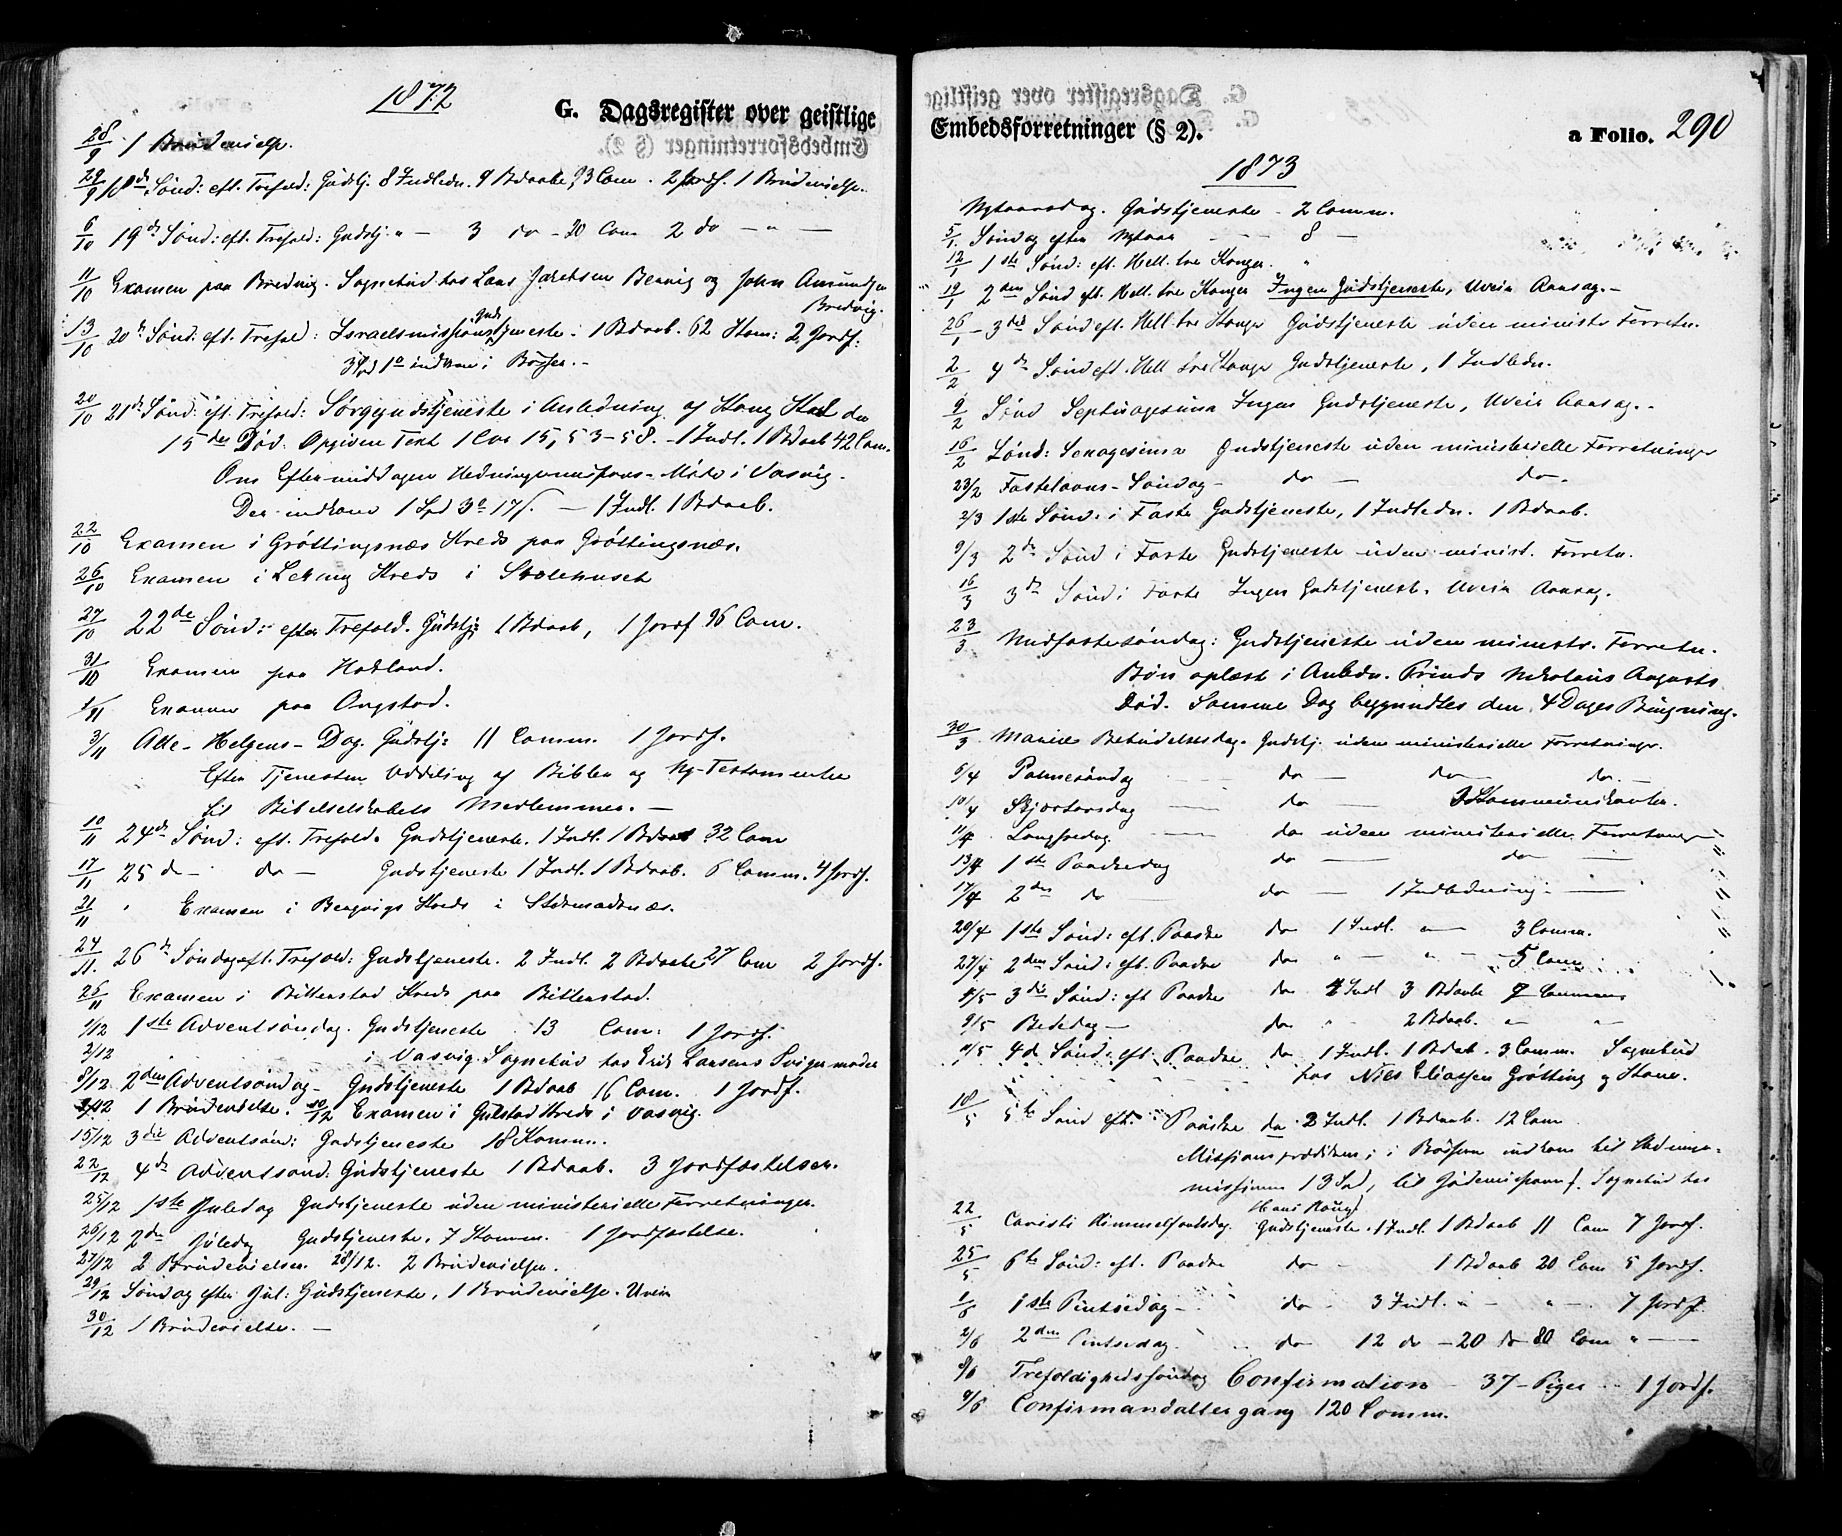 1872
G. Dagsregister over geistlige
28/9 1 Brudevielse.
29/9 18de Sønd: eft. Trefold: Gudstj. 8 Indledn. 9 Bdaab 93 Com. 2 Jordf. 1 Brudevielse.
6/10 19de Sønd: eft. Trefold: Gudstj. " — 3 do - 20 Com 2 do — " —
11/10 Examen paa Bredvig. Sognebud hos Lars Jacobsen Bervig og John Amundsen
Bredvig.
13/10 20de Sønd. eft. Trefold: Israelsmissionsgudstjeneste. 1 Bdaab. 62 Kom: 2 Jordf.
3 Spd 1 o indkom i Bøssen. -
20/10 21de Sønd: eft. Trefold: Sørgegudstjeneste i Anledning af Kong Karl den
15des Død. Opgiven Text 1 Cor 15, 53-58. - 1 Indl. 1 Bdaab 42 Com.
Om Eftermiddagen Hedningemissions-Møde i Vasvig.
Der indkom 1 Spd 3 o 17 s. — 1 Indl. 1 Bdaab.
22/10 Examen i Grøttingsnæs Kreds paa Grøttingsnæs.
26/10 Examen i Leknug Kreds i Skolehuset
27/10 22de Sønd: efter Trefold. Gudstj: 1 Bdaab, 1 Jordf 96 Com.
31/10 Examen paa Hatland.
1/11 Examen paa Ongstad.
3/11 Alle-Helgens-Dag. Gudstj: 11 Comm. 1 Jordf.
Efter Tjenesten Uddeling af Bibler og Ny-Testamenter
til Bibelselskabets Medlemmer. —
10/11 24de Sønd: eft. Trefold. Gudstjeneste. 1 Indl. 1 Bdaab 32 Com
17/11 25 d - do - Gudstjeneste 1 Indl. 1 Bdaab. 6 Comm. 4 Jordf.
21/11 " Examen i Bergvigs Kreds i Stormadnæs.
24/11. 26de Søndag eft. Trefold: Gudstjeneste. 2 Indl. 2 Bdaab 27 Com 2 Jordf.
26/11 Examen i Bitterstad Kreds paa Bitterstad.
1/12 1ste Adventsøndag. Gudstjeneste 13 Com: 1 Jordf.
2/12 i Vasvig. Sognebud hos Erik Larsens Svigermoder
8/12 2den Adventsøndag - Gudstjeneste 1 Bdaab 16 Com. 1 Jordf.
1 Brudevielse. 10/12 Examen i Gulstad Kreds i Vasvig.
15/12 3die Adventsønd: Gudstjeneste 18 Komm.
22/12 4de Adventsønd. Gudstjeneste 1 Bdaab. 3 Jordfæstelser.
25/12 1ste Juledag Gudstjeneste uden ministerielle Forretninger.
26/12 2den Juledag Gudstjeneste, 7 Komm. 1 Jordfæstelse.
27/12 2 Brudevielser. 28/12. 2 Brudevielser.
29/12 Søndag efter Jul: Gudstjeneste, 1 Brudevielse. Uveir
30/12 1 Brudevielse. —
Embedsforretninger (§ 2).
a Folio. 290
1873
Nytaarsdag. Gudstjeneste - 2 Comm.
5/1. Søndag efter Nytaar - - - 8 —
12/1 1ste Sønd: eft. Hell. tre Konger. "
19/1 2den Sønd eft. Hell. tre Konger Ingen Gudstjeneste, Uveir Aarsag. -
26/1 - 3die Sønd eft. Hell. tre Konger Gudstjeneste uden ministr Forretn.
2/2 4de Sønd eft. Hell tre Konger Gudstjeneste, 1 Indledn.
9/2 Sønd Septuagesima Ingen Gudstjeneste, Uveir Aarsag. -
16/2 Sønd: Sexagesima Gudstjeneste uden ministerielle Forretninger
23/2 Fastelavns-Søndag - do — do.
2/3 1ste Sønd. i Faste Gudstjeneste, 1 Indledn. 1 Bdaab.
9/3 2de Sønd i Faste Gudstjeneste uden minist. Forretn.
16/3 3de Sønd i Faste Ingen Gudstjenest. Uveir Aarsag.
23/3 Midfastesøndag: Gudstjeneste uden ministr. Forretn.
Bøn oplæst i Anledn. Prinds Nikolaus Augusts
Død. Samme Dag begyndtes den 4 Dages Ringning.
30/3 Mariæ Bebudelsesdag. Gudstj. uden ministerielle Forretninger.
6/4 Palmesøndag — do — do — do. —
10/4 Skjærtorsdag — do — 3 Kommunikanter.
11/4 Langfredag. do uden ministerielle Forretninger
13/4 1ste Paaskedag do — do —
17/4 2den do — do — 1 Indledning. —
20/4 1ste Sønd: eft. Paaske do 1 Indl. " — 3 Comm.
27/4 2den Sønd: eft. Paaske do " — " — 5 Com
4/5 3die Sønd: eft Paaske do 4 Indl 3 Bdaabe 7 Commun
9/5 Bededag — do " - 2 Bdaab. " "
11/5 4de Sønd: eft. Paaske do 1 Indl. 1 Bdaab. 3 Comm. Sognebud
hos Niels Eliassen Grøtting og Kone.
18/5 5te Sønd eft. Paaske do 2 Indl. 1 Bdaab. 12 Com
Missionsprædiken; i Bøssen indkom til Hedninge-
missionen 13 Spd, til Jødemissionen f. Sognebud hos
Hans Roug
22/5 Christi Himmelfartsdag. Gudstjeneste. 1 Indl. 1 Bdaab 11 Com 7 Jordf.
25/5 6te Sønd: eft. Paaske do - 1 Bdaab 20 Com 5 Jordf.
1/6 1ste Pintsedag - do - 3 Indl. " - " - 7 Jordf.
2/6 2den Pintsedag. do - 12 do - 20 do 80 Com " —
8/6 Trefoldighedssøndag Confirmation - 37 - Piger - 1 Jordf.
9/6 Confirmandaltergang 120 Comm.